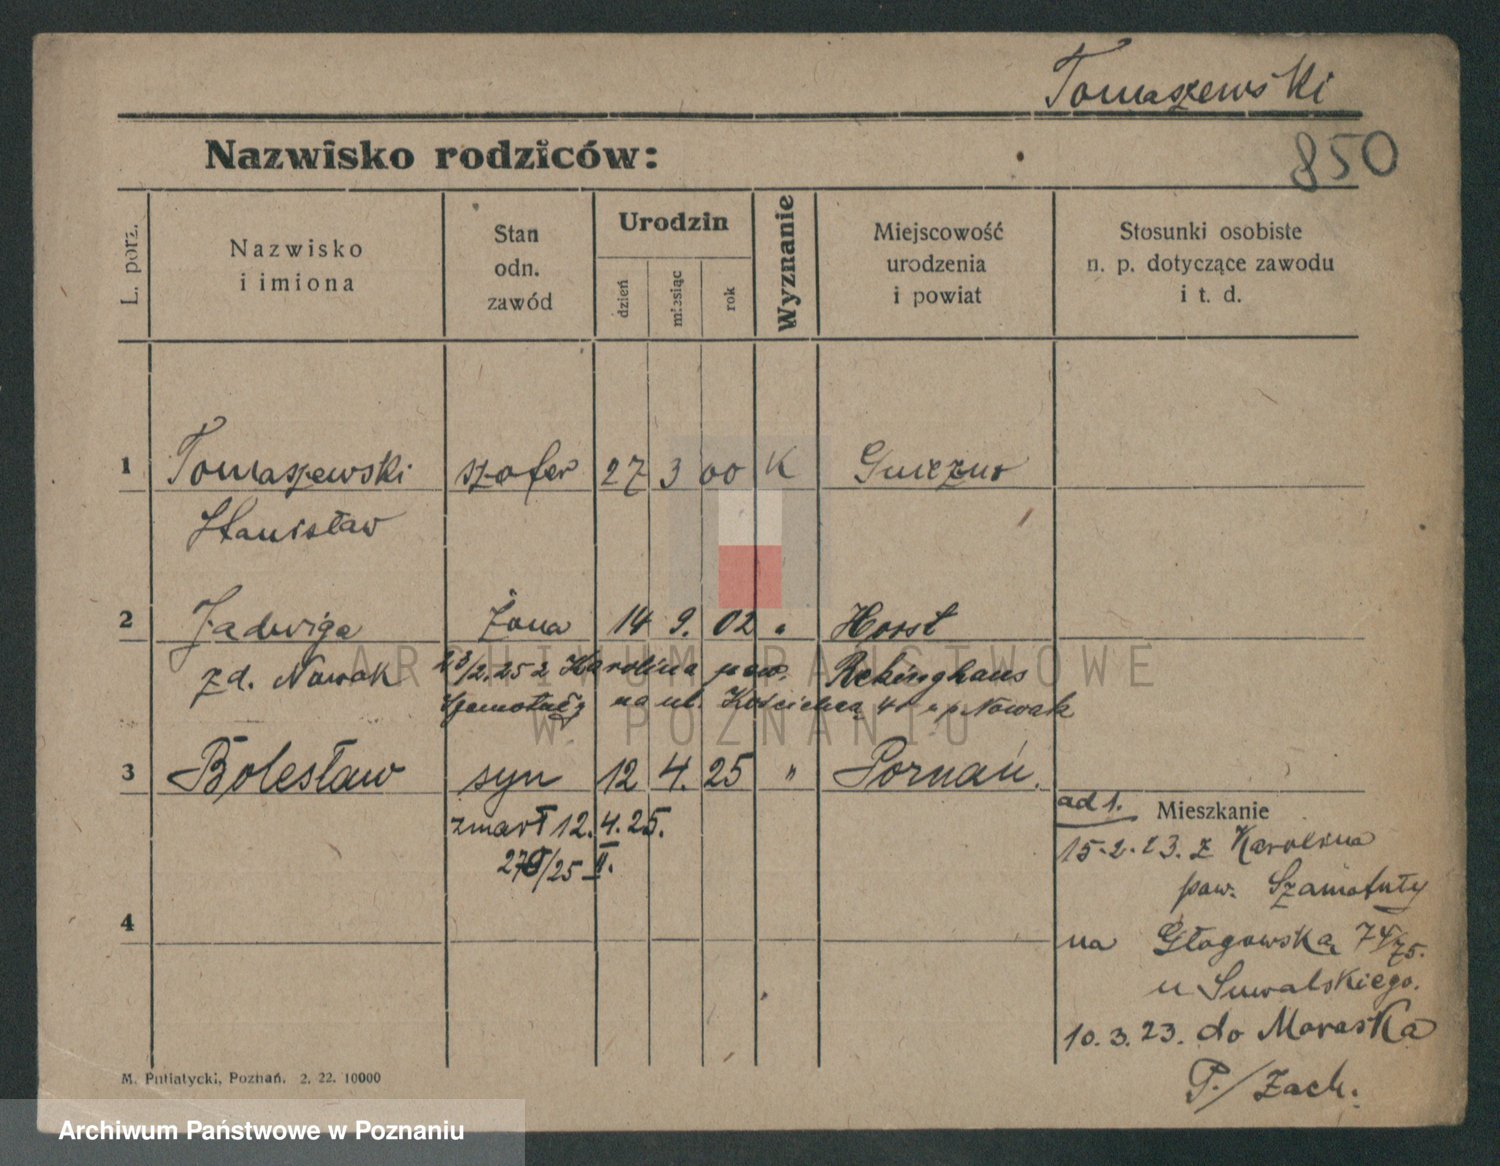 Tomaszewski
850
Nazwisko rodziców:
L. porz.
Nazwisko
i imiona
Stan
odn.
zawód
Urodzin
dzień
miesiąc
rok
Wyznanie
Miejscowość
urodzenia
i powiat
Stosunki osobiste
n. p. dotyczące zawodu
i t. d.
1 Tomaszewski szofer 27 3 00 K Gniezno
Stanisław
2 Jadwiga żona 14 9. 02 " Horst
zd. Nowak /2.25 z Karolina pow. Rekinghaus
na ul. 4 u p. Nowak
3 Bolesław syn 12 4. 25 " Poznań.
zmarł 12.4.25.
/25 II.
4
ad 1. Mieszkanie
15.2.23. z Karolina
pow. Szamotuły
na Głogowską 74/75.
u Suwalskiego.
10.3.23. do Moraska
P./Zach.
M. Putiatycki, Poznań. 2. 22. 10000
ARCHIWUM PAŃSTWOWE
W POZNANIU
Archiwum Państwowe w Poznaniu